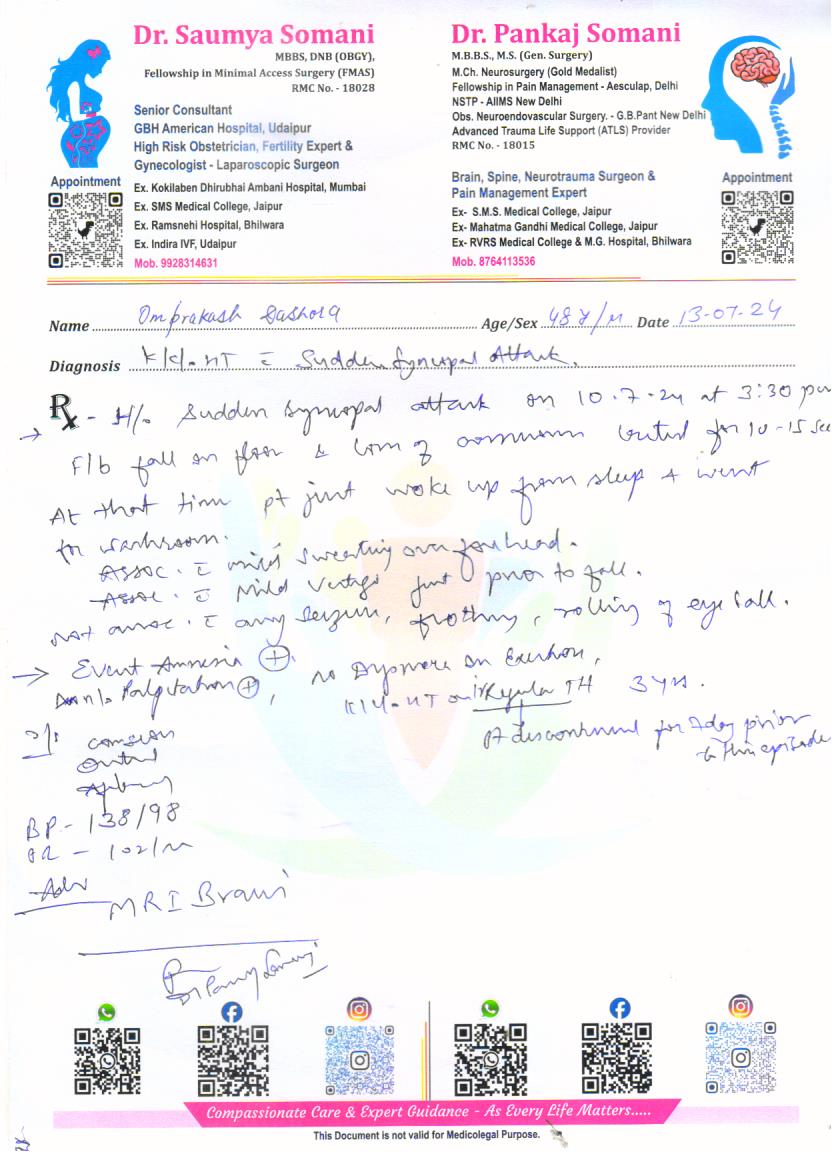 Dr. Saumya Somani
MBBS, DNB (OBGY),
Fellowship in Minimal Access Surgery (FMAS)
RMC No. - 18028
Senior Consultant
GBH American Hospital, Udaipur
High Risk Obstetrician, Fertility Expert &
Gynecologist - Laparoscopic Surgeon
Ex. Kokilaben Dhirubhai Ambani Hospital, Mumbai
Ex. SMS Medical College, Jaipur
Ex. Ramsnehi Hospital, Bhilwara
Ex. Indira IVF, Udaipur
Mob. 9928314631
Appointment
Dr. Pankaj Somani
M.B.B.S., M.S. (Gen. Surgery)
M.Ch. Neurosurgery (Gold Medalist)
Fellowship in Pain Management - Aesculap, Delhi
NSTP - AIIMS New Delhi
Obs. Neuroendovascular Surgery. - G.B.Pant New Delhi
Advanced Trauma Life Support (ATLS) Provider
RMC No. - 18015
Brain, Spine, Neurotrauma Surgeon &
Pain Management Expert
Ex- S.M.S. Medical College, Jaipur
Ex- Mahatma Gandhi Medical College, Jaipur
Ex- RVRS Medical College & M.G. Hospital, Bhilwara
Mob. 8764113536
Appointment
Name Omprakash Age/Sex 48 y/m Date 13-07-24
Diagnosis K/c/o HT c̄ Sudden Syncopal Attack.
Rx - H/o Sudden syncopal attack on 10.7.24 at 3:30 pm
F/b fall on floor & loss of for 10-15 sec
At that time pt just woke up from sleep & went
for washroom.
Assoc. c̄ mild sweating over forehead.
Assoc. c̄ mild vertigo just prior to fall.
Not assoc. c̄ any seizure, frothing, rolling of eye ball.
Event Amnesia (+).
Palpitation (+), no Dyspnoea on Exertion,
K/c/o HT on irregular 3 yrs.
pt discontinued for 7 day prior
to this episode
conscious
BP - 138/98
PR - 102/m
Adv
MRI Brain
Compassionate Care & Expert Guidance - As Every Life Matters.....
This Document is not valid for Medicolegal Purpose.